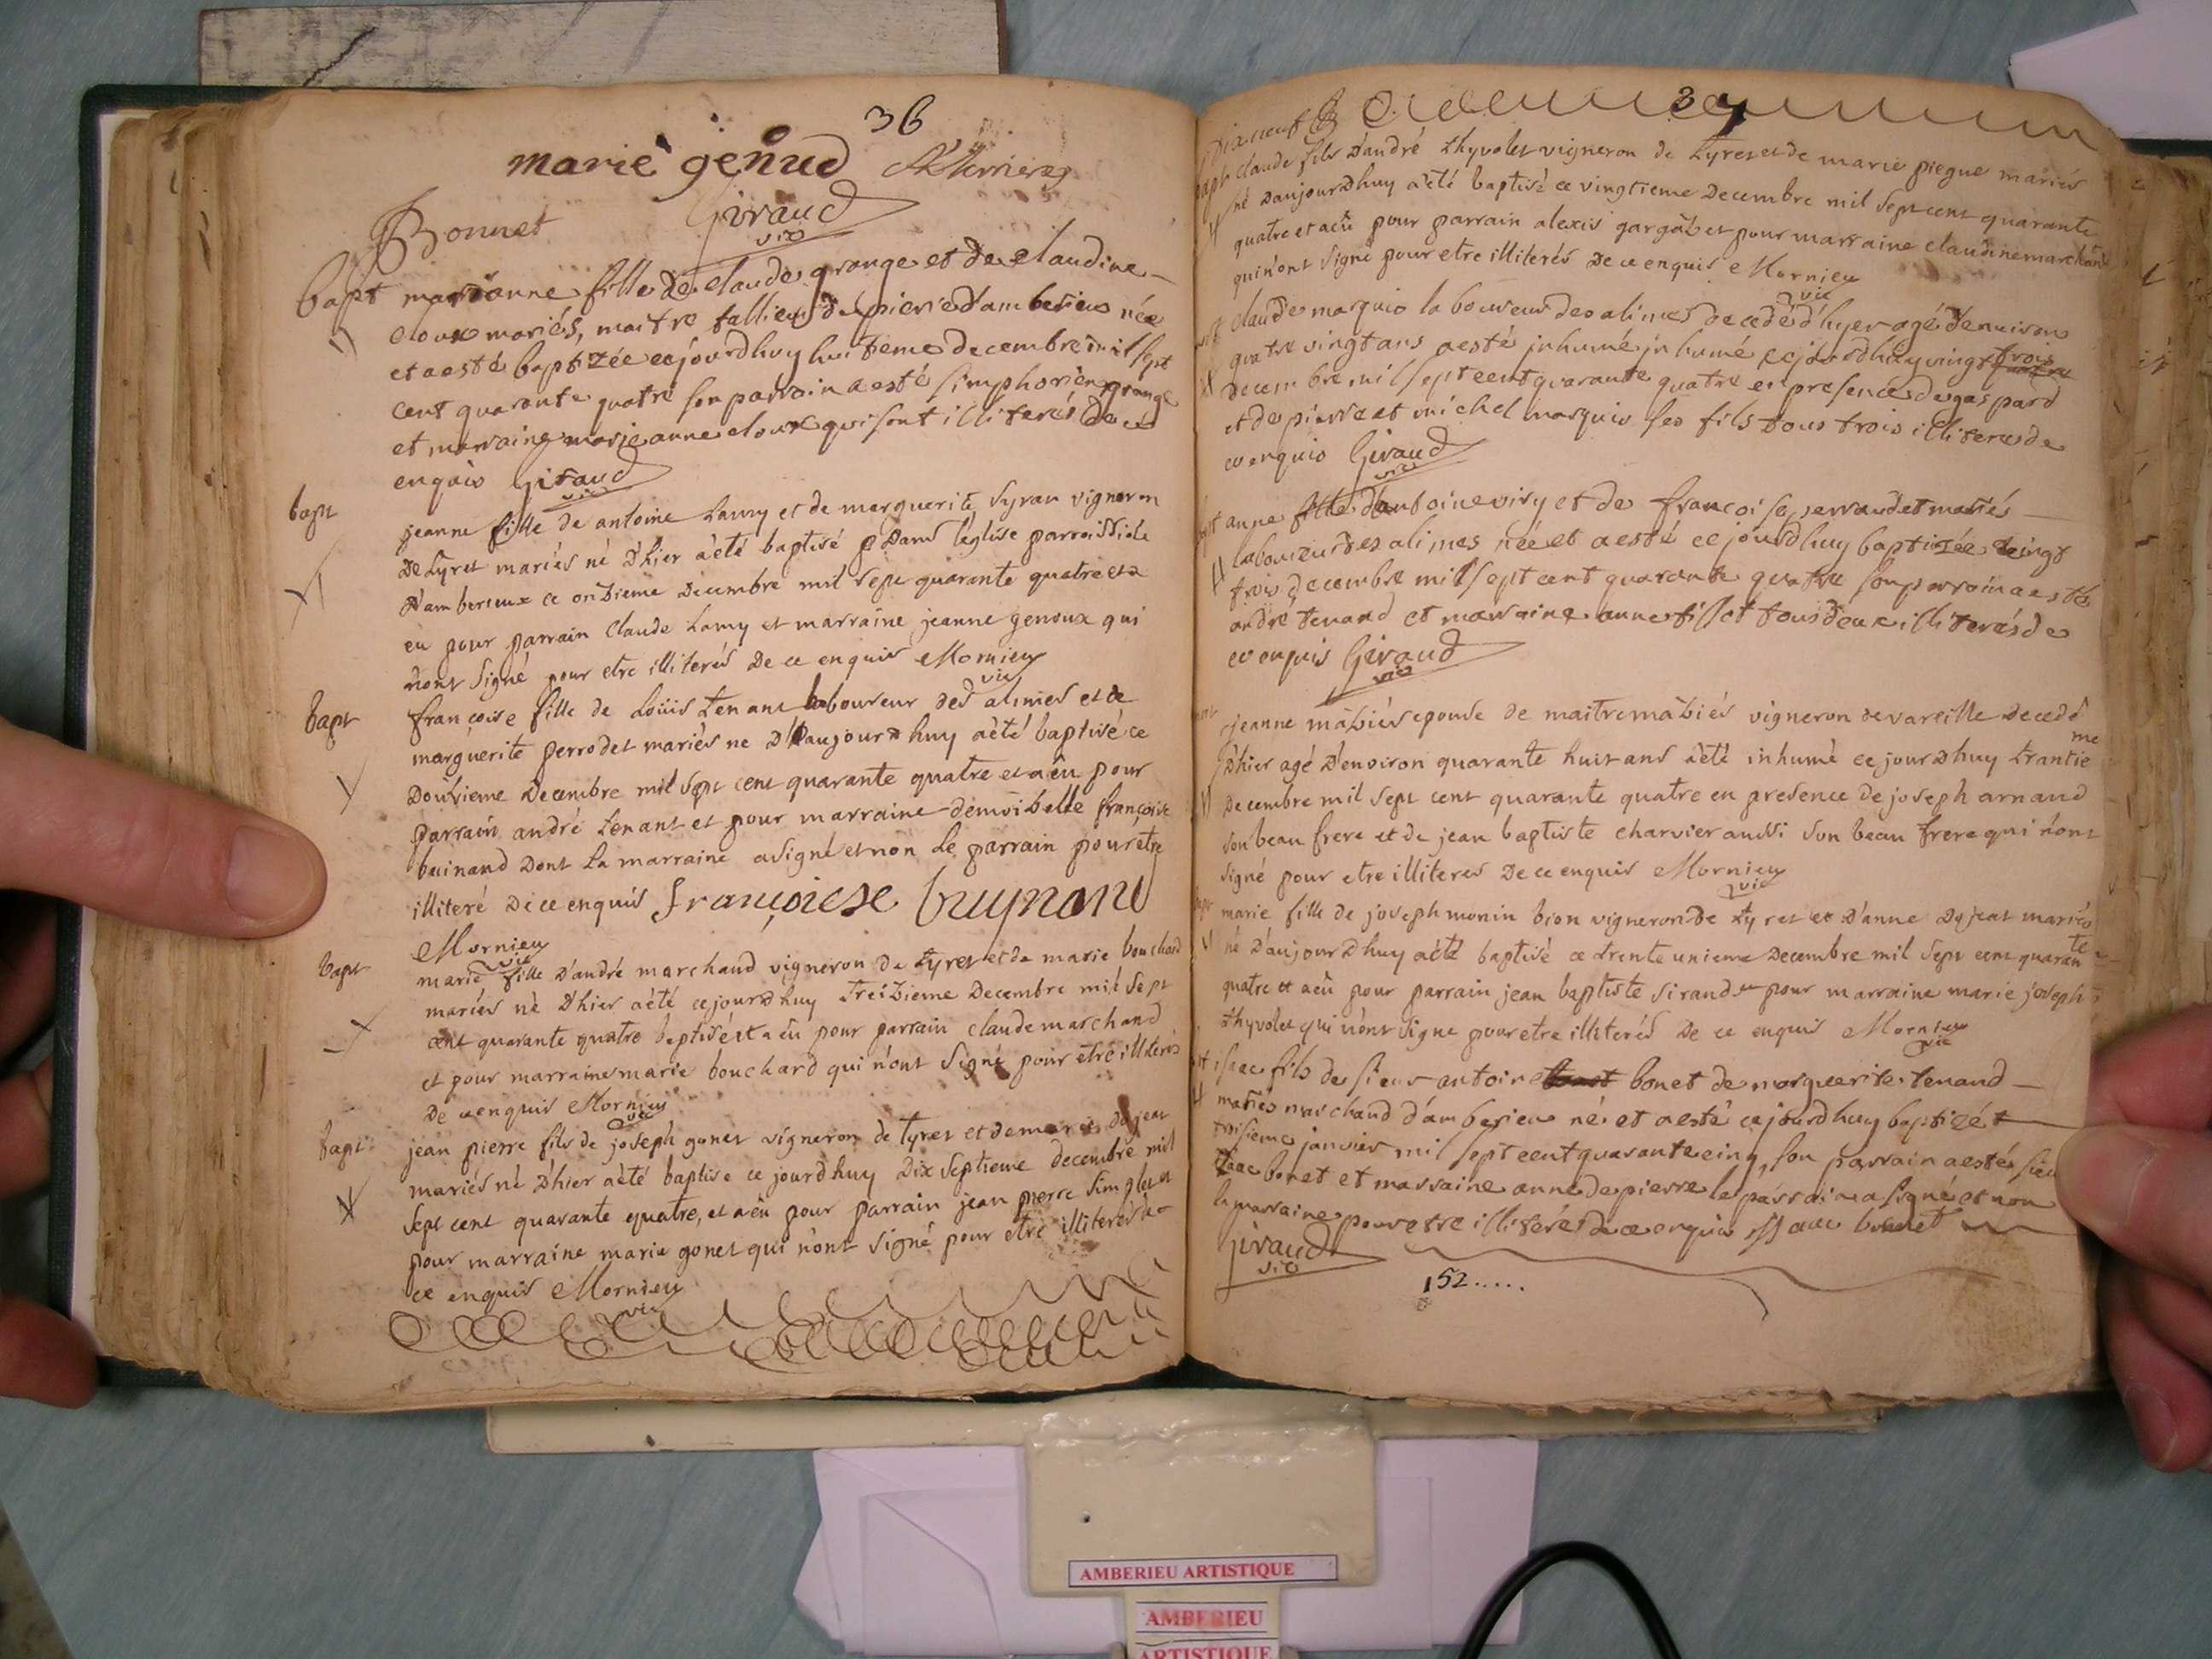 36
marie genud
Bonnet Giraud
vic
bapt marianne fille de claude grange et de claudine
cloux mariés, maitre tallieur de pierre d'amberieu née
et a esté baptizée cejourdhuy huitieme decembre mil sept
cent quarante quatre son parrain a esté simphorien grange
et marraine marie anne cloux qui sont illiterés de ce
enquis Giraud
vic
bapt jeanne fille de antoine Lamy et de marguerite syran vigneron
De tyret mariés né d'hier a été baptisé dans l'eglise parroissiale
D'amberieux ce onzieme Decembre mil sept quarante quatre et a
eu pour parrain Claude Lamy et marraine jeanne genoux qui
n'ont signé pour etre illiterés De ce enquis Mornieu
vic
bapt françoise fille de Loüis tenant laboureur des alimes et de
marguerite perrodet mariés ne D'aujourdhuy a été baptisé ce
Douzieme Decembre mil sept cent quarante quatre et a eu pour
parrain andré tenant et pour marraine demoiselle françoise
buinand Dont la marraine a signé et non le parrain pour etre
illiteré De ce enquis françoiese buynand
Mornieu
vic
bapt marie fille D'andré marchand vigneron De tyret et de marie bouchard
mariés né D'hier a été cejourdhuy Treizieme Decembre mil sept
cent quarante quatre baptisé et a eu pour parrain claude marchand
et pour marraine marie bouchard qui n'ont signé pour etre illiterés
De ce enquis Mornieu
vic
bapt jean pierre fils de joseph gonet vigneron de tyret et de marie Dujeat
mariés né D'hier a été baptisé ce jourdhuy Dix septieme decembre mil
sept cent quarante quatre, et a eu pour parrain jean pierre
pour marraine marie gonet qui n'ont signé pour etre illiterés de
ce enquis Mornieu
vic
Dix neuf
bapt claude fils D'andré thyvolet vigneron de tyret et de marie piegue mariés
né Daujourdhuy a été baptisé ce vingtieme Decembre mil sept cent quarante
quatre et a eu pour parrain alexis gargot et pour marraine claudine marchand
qui n'ont signé pour etre illiterés De ce enquis Mornieu
vic
claude marquis laboureur des alimes decedé d'hyer agé d'environ
quatre vingt ans a esté inhumé inhumé cejourdhuy vingt trois
Decembre mil sept cent quarante quatre en presence de gaspard
et de pierre et michel marquis ses fils tous trois illiterés de
ce enquis Giraud
vic
bapt anne fille d'antoine viry et de françoise perraudet mariés
laboureur des alimes née et a esté ce jourdhuy baptizée vingt
trois decembre mil sept cent quarante quatre son parrain a esté
andré tenand et marraine anne fillet tous deux illiterés de
ce enquis Giraud
vic
jeanne mabiés epouse de maitre mabiés vigneron de vareille Decedé
D'hier agé D'environ quarante huit ans a été inhumé cejourdhuy trantieme
Decembre mil sept cent quarante quatre en presence de joseph arnand
son beau frere et de jean baptiste charvier aussi son beau frere qui n'ont
signé pour etre illiterés De ce enquis Mornieu
vic
bapt marie fille de joseph monin bion vigneron De tyret et D'anne Dujeat mariés
né D'aujourdhuy a été baptisé ce trente unieme Decembre mil sept cent quarante
quatre et a eu pour parrain jean baptiste sirand et pour marraine marie joseph
thyvolet qui n'ont signé pour etre illiterés De ce enquis Mornieu
vic
isaac fils de sieur antoine bonet de marguerite tenand
mariés marchand d'amberieu né et a esté cejourdhuy baptizé
troisieme janvier mil sept cent quarante cinq, son parrain a esté sieu
isaac bonet et marraine anne de pierre le parrain a signé et non
la marraine pour etre illiteré de ce enquis isaac bonnet
Giraud
vic
152.....
AMBERIEU ARTISTIQUE
AMBERIEU
ARTISTIQUE